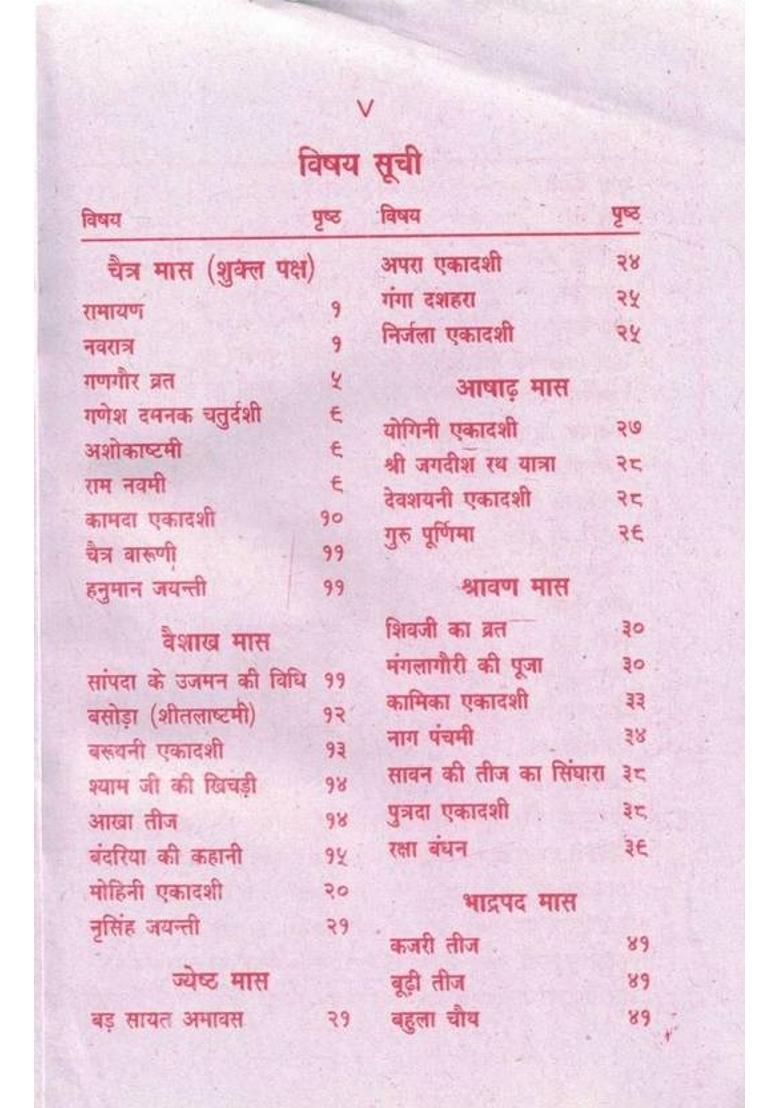 V
विषय सूची
विषय पृष्ठ
चैत्र मास (शुक्ल पक्ष)
रामायण १
नवरात्र १
गणगौर व्रत ५
गणेश दमनक चतुर्दशी ६
अशोकाष्टमी ६
राम नवमी ६
कामदा एकादशी १०
चैत्र वारूणी ११
हनुमान जयन्ती ११
वैशाख मास
सांपदा के उजमन की विधि ११
बसोड़ा (शीतलाष्टमी) १२
बरूथनी एकादशी १३
श्याम जी की खिचड़ी १४
आखा तीज १४
बंदरिया की कहानी १५
मोहिनी एकादशी २०
नृसिंह जयन्ती २१
ज्येष्ट मास
बड़ सायत अमावस २१
विषय पृष्ठ
अपरा एकादशी २४
गंगा दशहरा २५
निर्जला एकादशी २५
आषाढ़ मास
योगिनी एकादशी २७
श्री जगदीश रथ यात्रा २८
देवशयनी एकादशी २८
गुरु पूर्णिमा २९
श्रावण मास
शिवजी का व्रत ३०
मंगलागौरी की पूजा ३०
कामिका एकादशी ३३
नाग पंचमी ३४
सावन की तीज का सिंघारा ३८
पुत्रदा एकादशी ३८
रक्षा बंधन ३९
भाद्रपद मास
कजरी तीज ४१
बूढ़ी तीज ४१
बहुला चौथ ४१